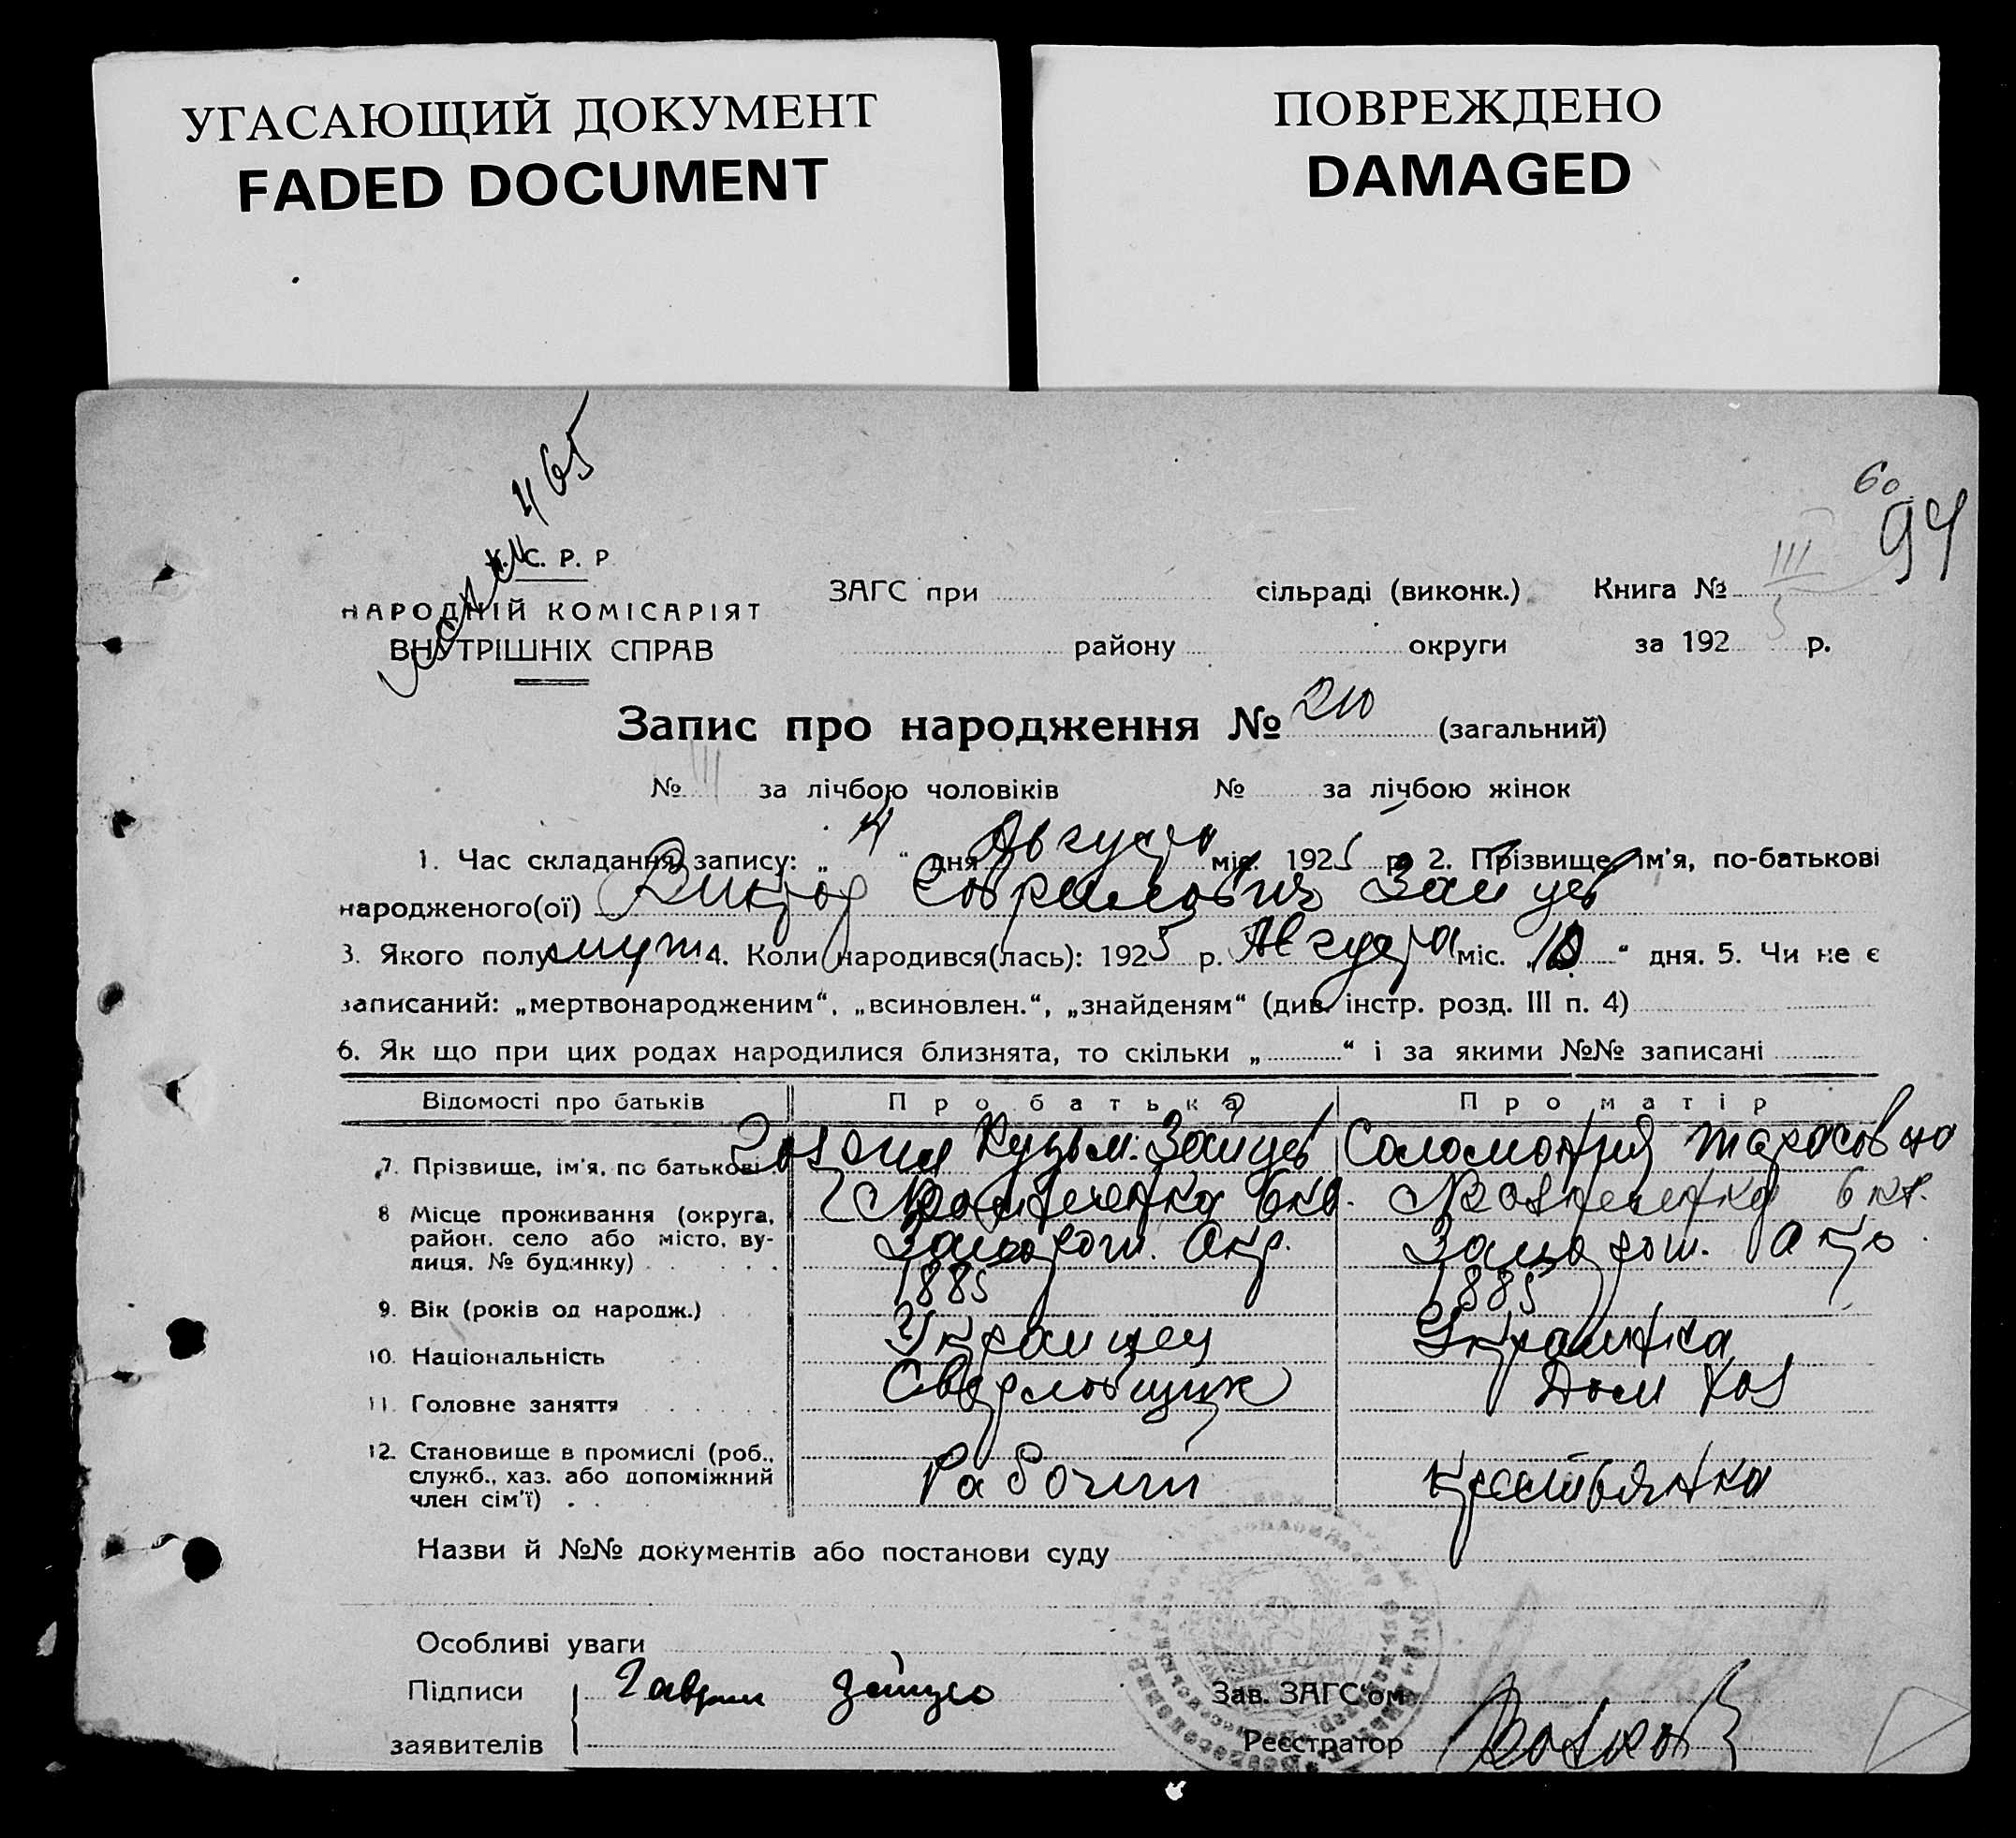 УГАСАЮЩИЙ ДОКУМЕНТ
FADED DOCUMENT
ПОВРЕЖДЕНО
DAMAGED
465
60
94
У. С. Р. Р
НАРОДНІЙ КОМІСАРІЯТ
ВНУТРІШНІХ СПРАВ
ЗАГС при сільраді (виконк.) Книга № III
району округи за 1925 р.
Запис про народження № 210 (загальний)
№ за лічбою чоловіків № за лічбою жінок
1. Час складання запису: „ “ дня Августа міс. 1925 р. 2. Прізвище, ім’я, по-батькові
народженого(ої) Виктор Гаврилович Зайцев
3. Якого полу муж 4. Коли народився(лась): 1925 р. Августа міс. „ “ дня. 5. Чи не є
записаний: „мертвонародженим“, „всиновлен.“, „знайденям“ (див. інстр. розд. III п. 4)
6. Як що при цих родах народилися близнята, то скільки „ “ і за якими №№ записані
Відомості про батьків Про батька Про матір
7. Прізвище, ім’я, по батькові Кузьм. Зайцев Соломония Тарасовна
8 Місце проживання (округа,
район, село або місто, ву-
лиця, № будинку) Запорож. Окр. Запорож. Окр.
9. Вік (років од народж.) 1885 1885
10. Національність Украинец Украинка
11. Головне заняття Сверловщик Дом Хоз
12. Становище в промислі (роб.,
служб., хаз. або допоміжний
член сім’ї) Рабочий крестьянка
Назви й №№ документів або постанови суду
Особливі уваги
Підписи Гаврил Зайцев
заявителів
Зав. ЗАГС’ом
Реєстратор